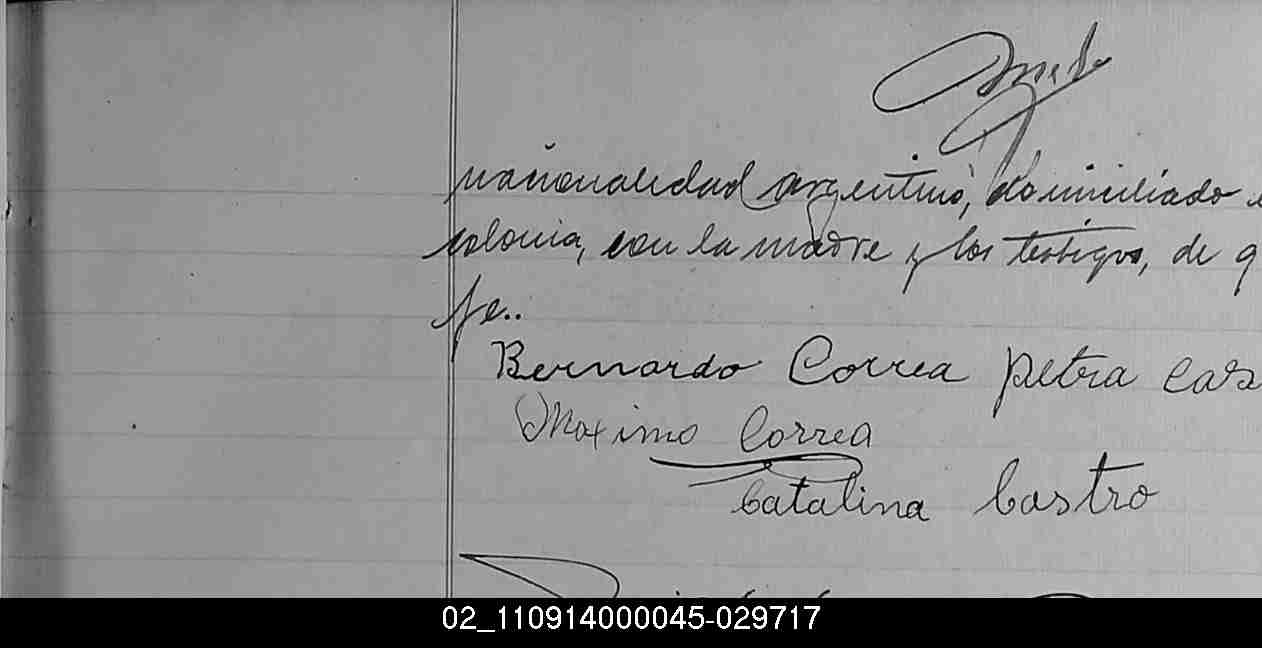 nacionalidad argentino, domiciliado e
colonia, con la madre y los testigos, de q
fe..
Bernardo Correa Petra Cas
Maximo Correa
Catalina Castro
02_110914000045-029717